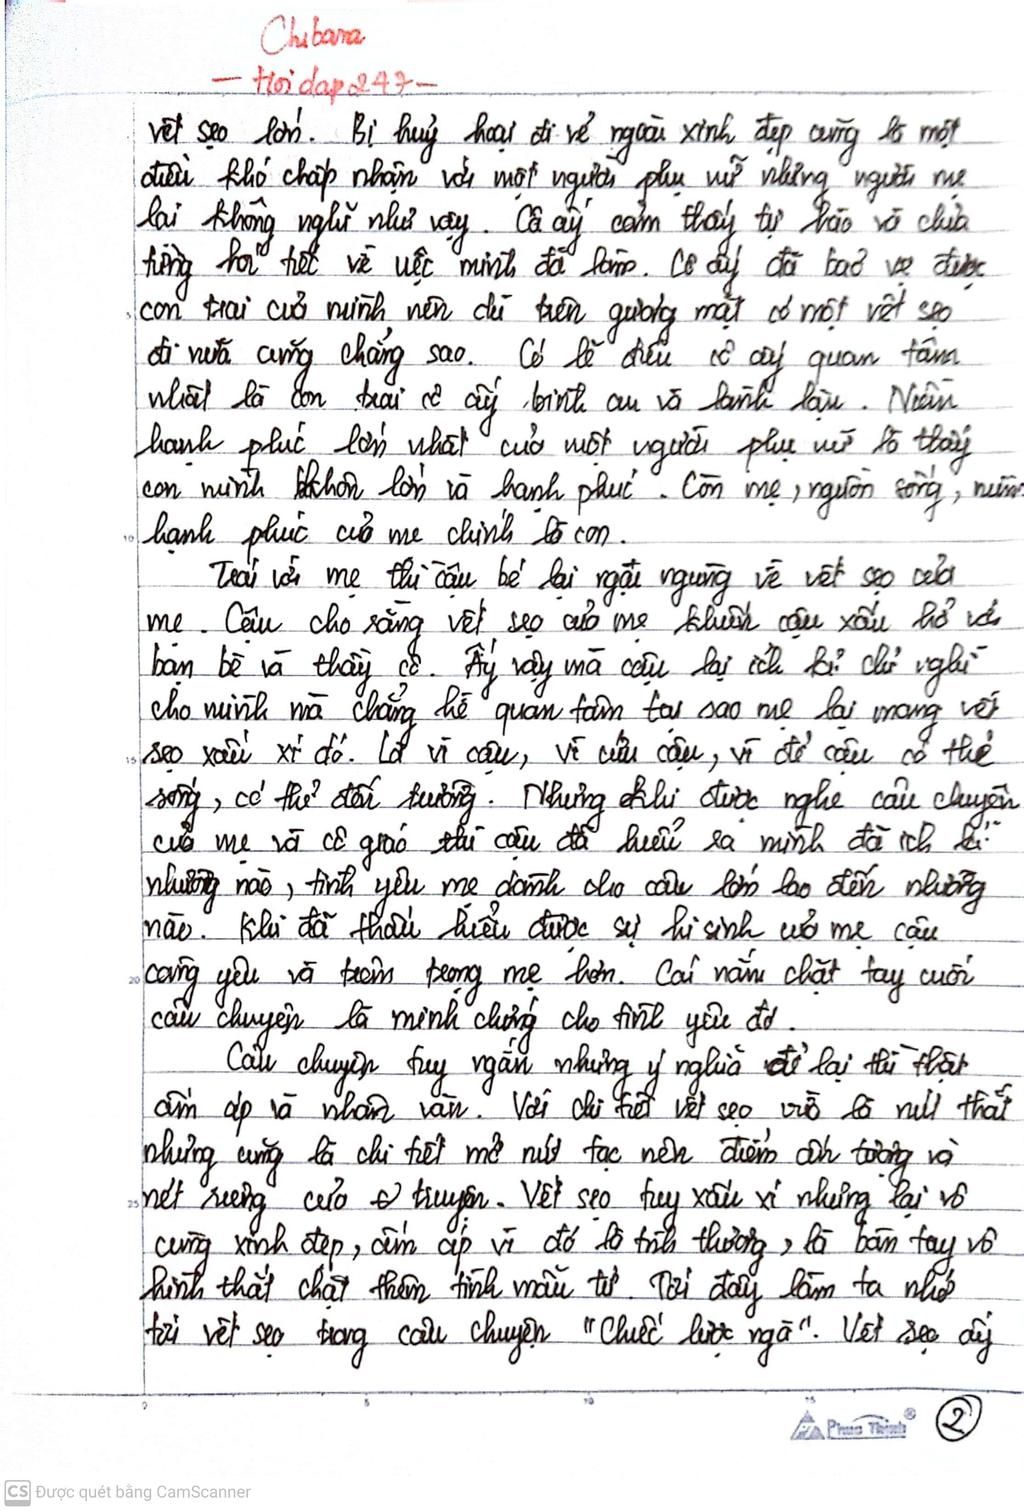 Chibana
— Hoidap247 —
vết sẹo lớn. Bị huỷ hoại đi vẻ ngoài xinh đẹp cũng là một
điều khó chấp nhận với một người phụ nữ nhưng người mẹ
lại không nghĩ như vậy. Cô ấy cảm thấy tự hào và chưa
từng hối tiếc về việc mình đã làm. Cô ấy đã bảo vệ được
con trai của mình nên dù trên gương mặt có một vết sẹo
đi nữa cũng chẳng sao. Có lẽ điều cô ấy quan tâm
nhất là con trai cô ấy bình an và lành lặn. Niềm
hạnh phúc lớn nhất của một người phụ nữ là thấy
con mình khôn lớn và hạnh phúc. Còn mẹ, nguồn sống, niềm
hạnh phúc của mẹ chính là con.
Trái với mẹ thì cậu bé lại ngại ngùng về vết sẹo của
mẹ. Cậu cho rằng vết sẹo của mẹ khiến cậu xấu hổ với
bạn bè và thầy cô. Ấy vậy mà cậu lại ích kỉ chỉ nghĩ
cho mình mà chẳng hề quan tâm tại sao mẹ lại mang vết
sẹo xấu xí đó. Là vì cậu, vì cứu cậu, vì để cậu có thể
sống, có thể đến trường. Nhưng khi được nghe câu chuyện
của mẹ và cô giáo thì cậu đã hiểu ra mình đã ích kỉ
nhường nào, tình yêu mẹ dành cho cậu lớn lao đến nhường
nào. Khi đã thấu hiểu được sự hi sinh của mẹ cậu
càng yêu và trân trọng mẹ hơn. Cái nắm chặt tay cuối
câu chuyện là minh chứng cho tình yêu đó.
Câu chuyện tuy ngắn nhưng ý nghĩa để lại thì thật
ấm áp và nhân văn. Với chi tiết vết sẹo vừa là nút thắt
nhưng cũng là chi tiết mở nút tạc nên điểm ấn tượng và
nét riêng của truyện. Vết sẹo tuy xấu xí nhưng lại vô
cùng xinh đẹp, ấm áp vì đó là tình thương, là bàn tay vô
hình thắt chặt thêm tình mẫu tử. Tới đây làm ta nhớ
tới vết sẹo trong câu chuyện "Chiếc lược ngà". Vết sẹo ấy
Phuc Thinh®
2
CS Được quét bằng CamScanner